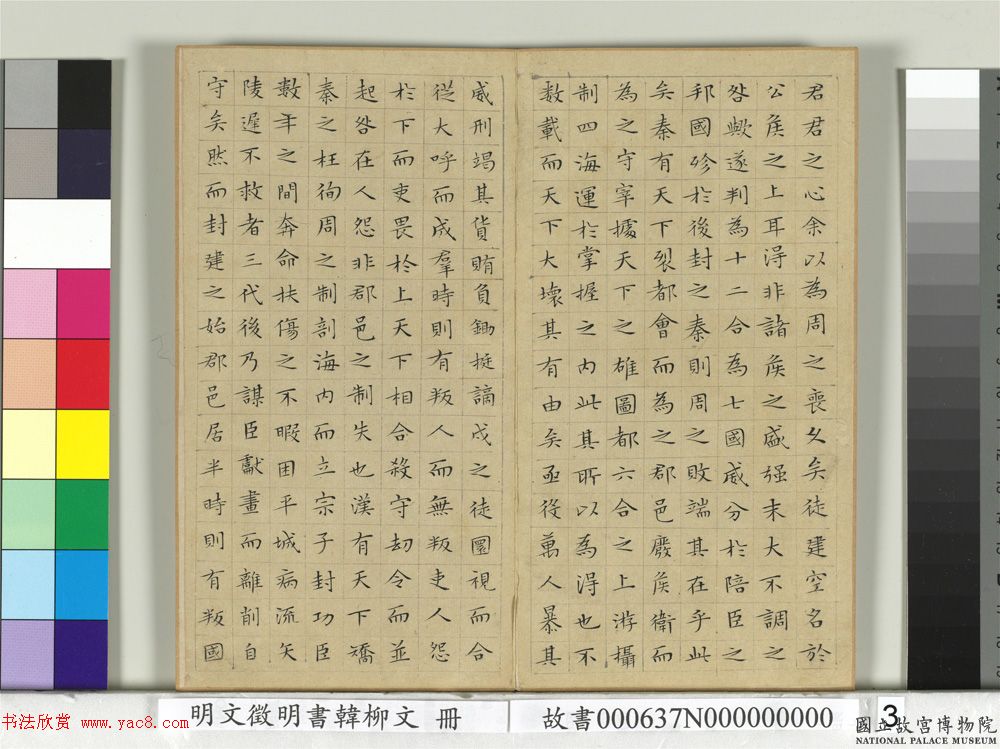 君君之心余以為周之喪久矣徒建空名於
公矦之上耳得非諸矦之盛强末大不調之
咎歟遂判為十二合為七國威分於陪臣之
邦國殄於後封之秦則周之敗端其在乎此
矣秦有天下裂都會而為之郡邑廢矦衛而
為之守宰據天下之雄圖都六合之上游攝
制四海運於掌握之内此其所以為得也不
數載而天下大壞其有由矣亟役萬人暴其
威刑竭其貨賄負鋤梃謫戍之徒圜視而合
從大呼而成羣時則有叛人而無叛吏人怨
於下而吏畏於上天下相合殺守劫令而並
起咎在人怨非郡邑之制失也漢有天下矯
秦之枉徇周之制剖海内而立宗子封功臣
數年之間奔命扶傷之不暇困平城病流矢
陵遲不救者三代後乃謀臣獻畫而離削自
守矣然而封建之始郡邑居半時則有叛國
明文徵明書韓柳文 冊
故書000637N000000000
3
書法欣赏 www.yac8.com
國立故宮博物院
NATIONAL PALACE MUSEUM